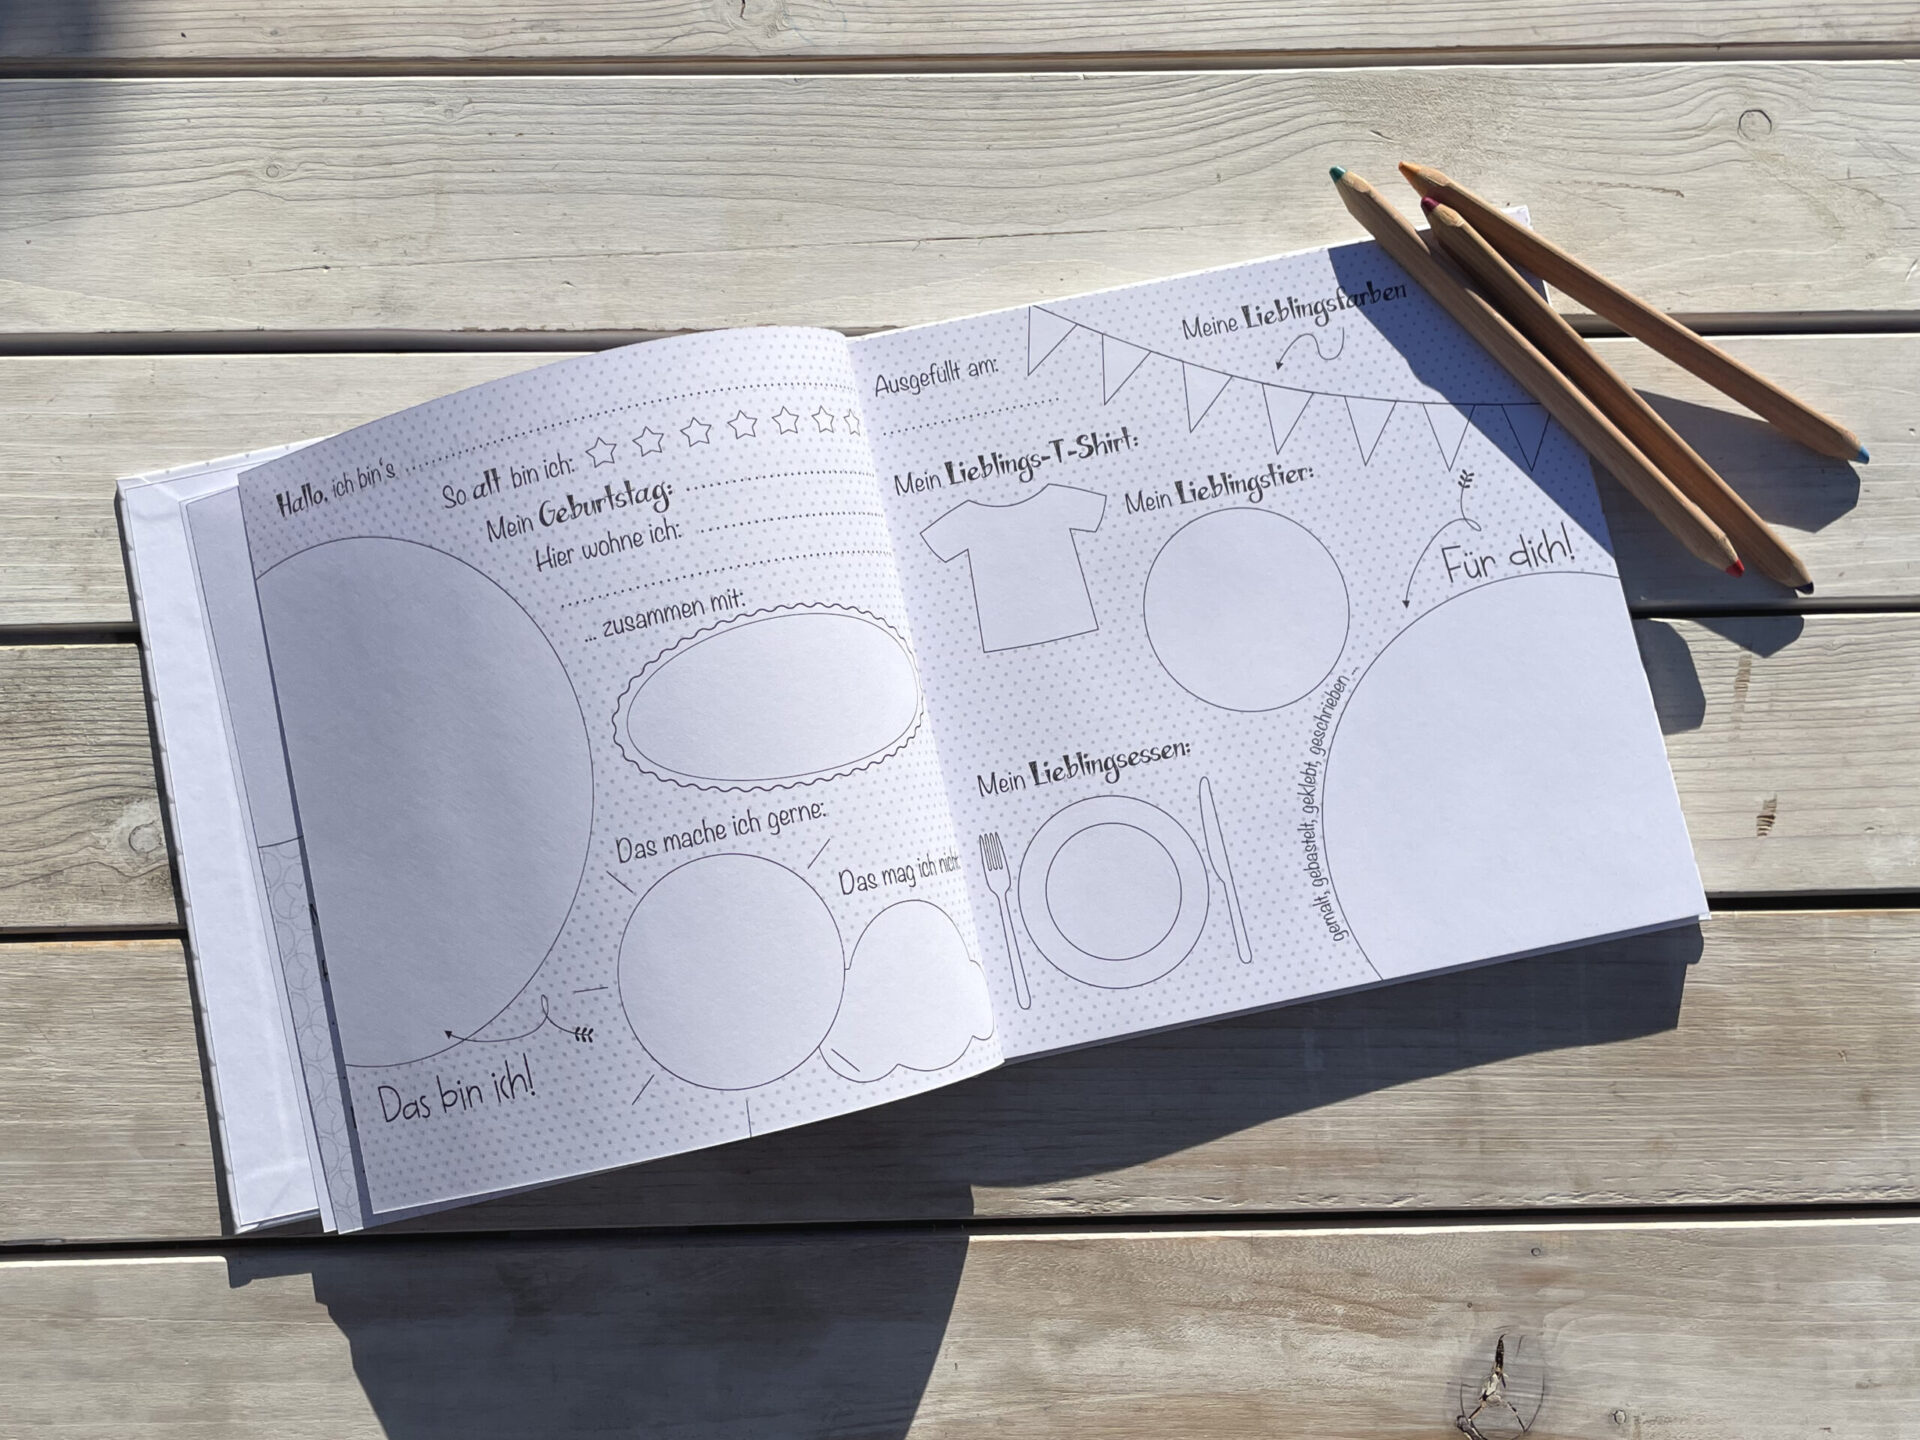 Hallo, ich bin's
So alt bin ich:
Mein Geburtstag:
Hier wohne ich:
... zusammen mit:
Das mache ich gerne:
Das mag ich nicht
Das bin ich!
Ausgefüllt am:
Meine Lieblingsfarben
Mein Lieblings-T-Shirt:
Mein Lieblingstier:
Für dich!
gemalt, gebastelt, geklebt, geschrieben ...
Mein Lieblingsessen: